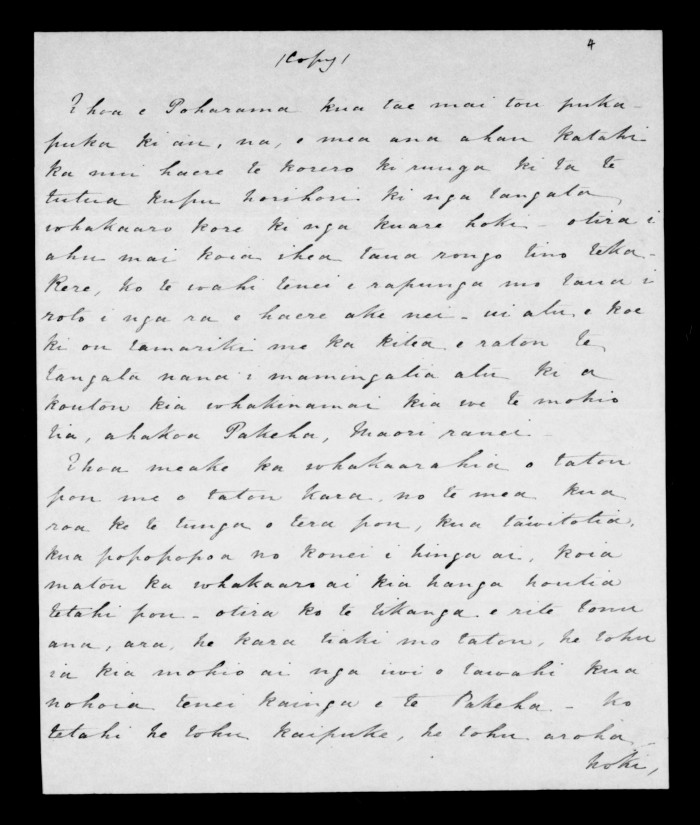 4
(Copy)
E hoa e Poharama kua tae mai tou puka-
puka ki au, na, e mea ana ahau katahi
ka nui haere te korero ki runga ki ta te
tutua kupu horihori ki nga tangata
whakaaro kore ki nga kuare hoki - otira i
ahu mai koia ihea tana rongo tino teka-
Kere, ko te wahi tenei e rapunga mo tana i
roto i nga ra e haere ake nei - ui atu e koe
ki ou tamariki me ka kitea e ratou te
tangata nana i mamingatia atu ki a
koutou kia whakinamai kia we te mohio
tia, ahakoa Pakeha, Maori ranei -
E hoa meake ka whakaarahia o tatou
pou me o tatou Kara, no te mea kua
roa ke te tunga o tera pou, kua tawitotia,
kua popopopoa no konei i hinga ai, koia
matou ka whakaaro ai kia hanga houtia
tetahi pou - otira ko te tikanga e rite tonu
ana, ara, he kara tiaki mo tatou, he tohu
ia kia mohio ai nga iwi o tawahi kua
nohoia tenei kainga e te Pakeha - Ko
tetahi he tohu kaipuke, he tohu aroha
hoki,